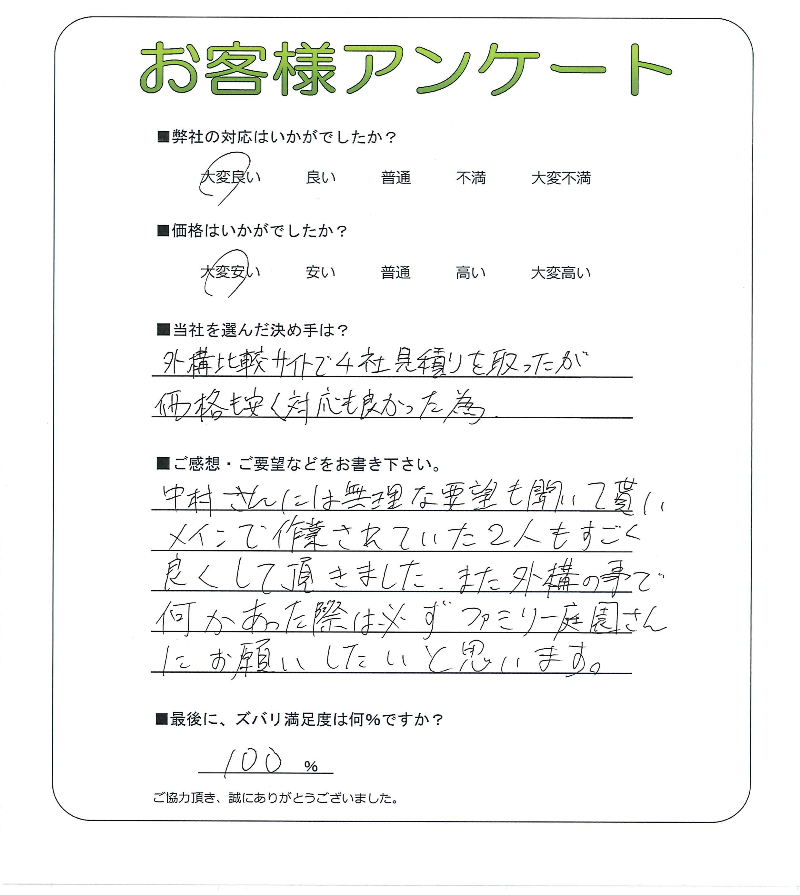 お客様アンケート
■弊社の対応はいかがでしたか？
大変良い 良い 普通 不満 大変不満
■価格はいかがでしたか？
大変安い 安い 普通 高い 大変高い
■当社を選んだ決め手は？
外構比較サイトで4社見積りを取ったが
価格も安く対応も良かった為.
■ご感想・ご要望などをお書き下さい。
中村さんには無理な要望も聞いて貰い
メインで作業されていた2人もすごく
良くして頂きました.また外構の事で
何かあった際は必ずファミリー庭園さん
にお願いしたいと思います。
■最後に、ズバリ満足度は何%ですか？
100 %
ご協力頂き、誠にありがとうございました。